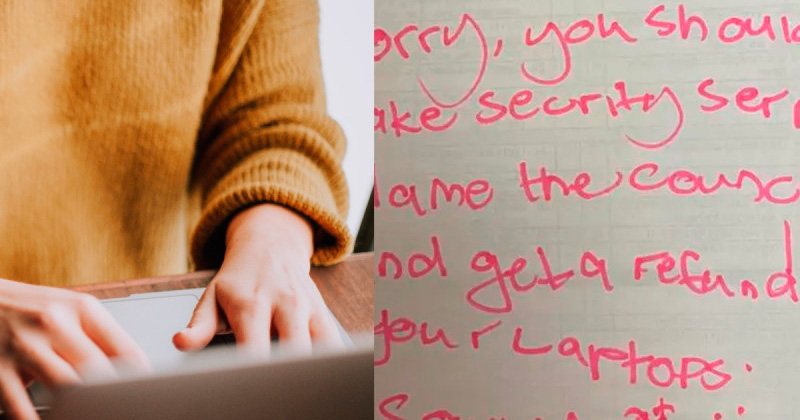 orry, you shoul
ake security ser
lame the counc
nd get a refund
your Laptops.